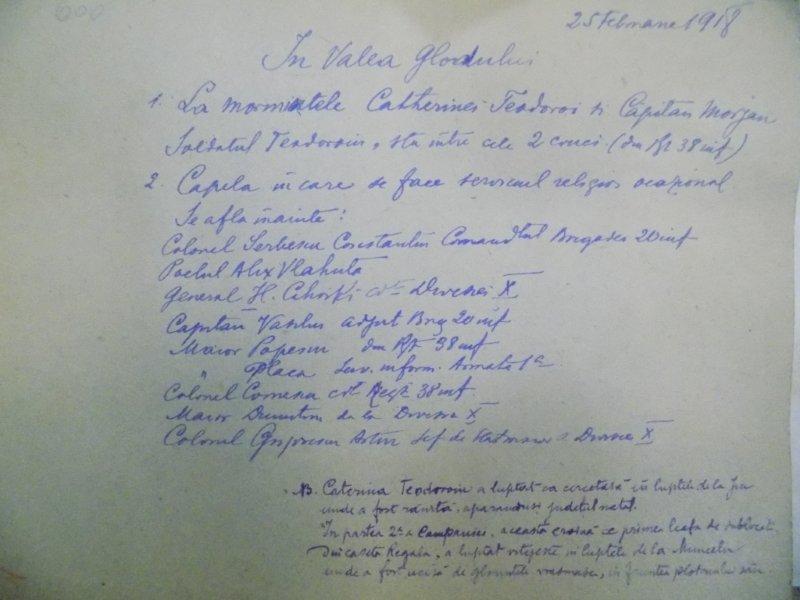 25 Februarie 1918
In Valea Glodului
1. La mormintele Catherinei Teodoroi si Capitan Morjan
Soldatul Teodoroiu, sta intre cele 2 cruci (din Rgt 38 inf)
2. Capela in care se face serviciul religios ocazional
Se afla inainte:
Colonel Serbescu Constantin Comandtul Brigadei 20 inf
Poetul Alex Vlahuta
General H. Cihoski cdt Diviziei X
Capitan Vasiliu adjut Brig 20 inf
Maior Popescu din Rgt 38 inf
" Placa Serv. inform. Armata 1a
Colonel Comanu cdt Regt 38 inf
Maior Dumitru de la Divizia X
Colonel Artur Sef de Stat major a Diviziei X
NB. Caterina Teodoroiu a luptat ca cercetasă in luptele de la Jiu
unde a fost rănită, aparandusi judetul natal.
In partea 2a a Campaniei, această eroină ce primea leafa de sublocot.
Din caseta Regala, a luptat vitejeste in luptele de la Muncelu
unde a fost ucisă de gloantele vrasmasu, in fruntea plotonului său.